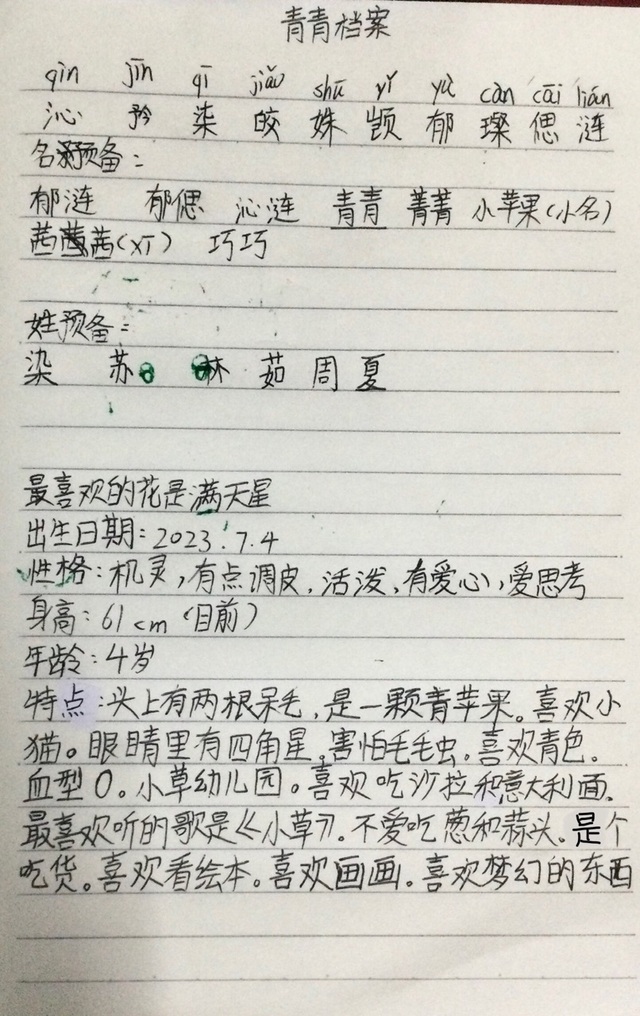 青青档案
qìn jīn qī jiǎo shū yǐ yù càn cāi lián
沁 矜 柒 皎 姝 顗 郁 璨 偲 涟
名预备：
郁涟 郁偲 沁涟 青青 菁菁 小苹果(小名)
茜茜(xī) 巧巧
姓预备：
染 苏 林 茹 周 夏
最喜欢的花是满天星
出生日期：2023.7.4
性格：机灵，有点调皮，活泼，有爱心，爱思考
身高：61cm（目前）
年龄：4岁
特点：头上有两根呆毛，是一颗青苹果。喜欢小
猫。眼睛里有四角星，害怕毛毛虫。喜欢青色。
血型O。小草幼儿园。喜欢吃沙拉和意大利面，
最喜欢听的歌是《小草》。不爱吃葱和蒜头。是个
吃货。喜欢看绘本。喜欢画画。喜欢梦幻的东西